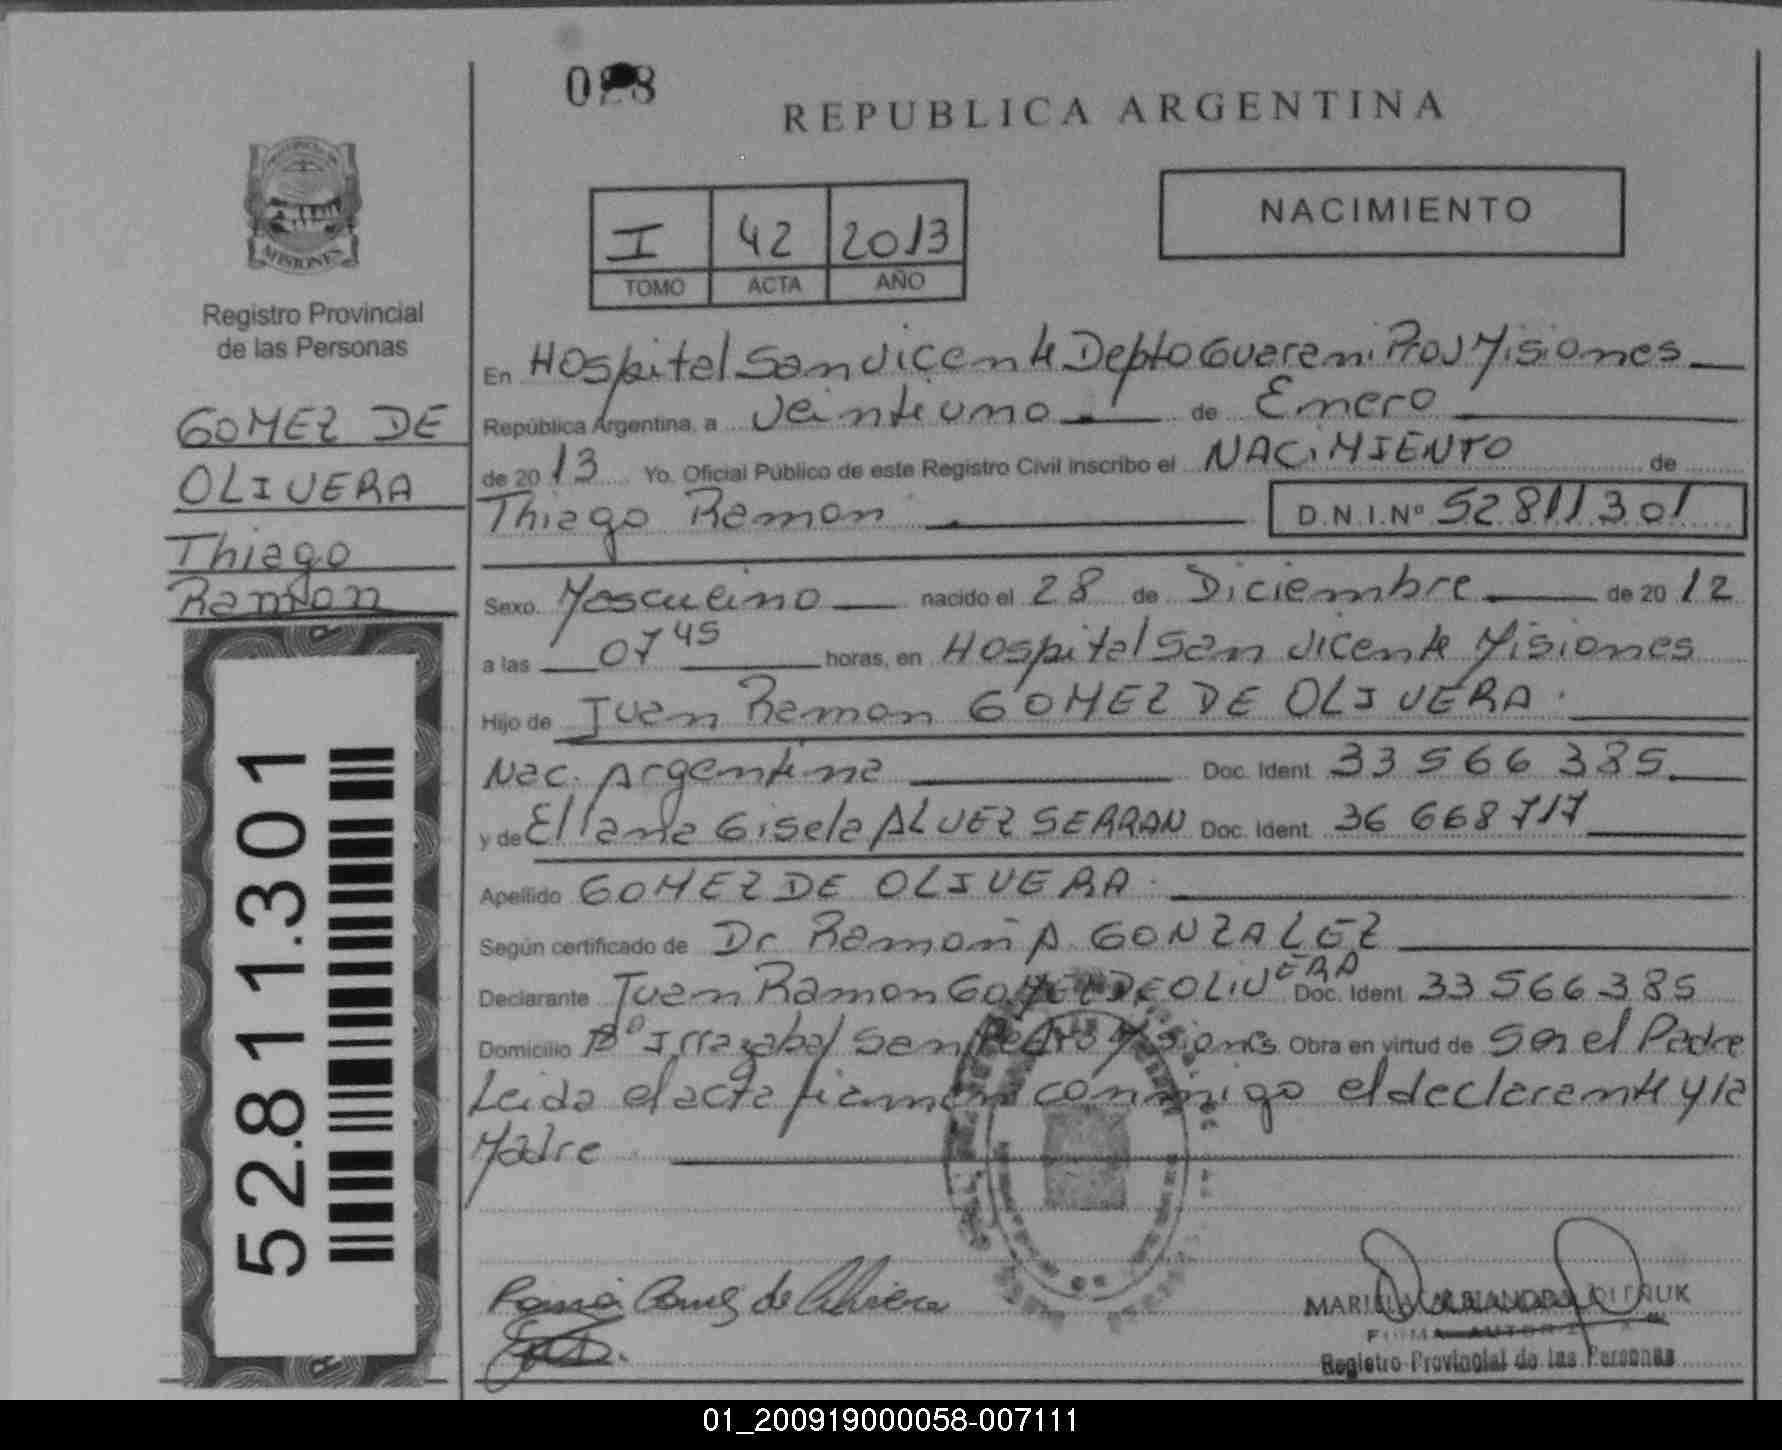 REPUBLICA ARGENTINA
MISIONES
Registro Provincial
de las Personas
GOMEZ DE
OLIVERA
Thiago
Ramon
52.811.301
I 42 2013
TOMO ACTA AÑO
NACIMIENTO
En Hospital San Vicente Depto Guarani Prov Misiones
República Argentina, a veintiuno de Enero
de 2013 Yo, Oficial Público de este Registro Civil inscribo el NACIMIENTO de
Thiago Ramon D.N.I.Nº 52811301
Sexo Masculino nacido el 28 de Diciembre de 2012
a las 07 45 horas, en Hospital San Vicente Misiones
Hijo de Juan Ramon GOMEZ DE OLIVERA.
Nac. Argentina Doc. Ident 33 566 385
y de Eliana Gisela ALVEZ SERRAN Doc. Ident. 36 668 717
Apellido GOMEZ DE OLIVERA.
Según certificado de Dr Ramon A. GONZALEZ
Declarante Juan Ramon GOMEZ DE OLIVERA Doc. Ident 33 566 385
Domicilio Bº Irrazabal San Pedro Misiones Obra en virtud de Ser el Padre
Leida el acta firman conmigo el declarante y la
Madre
Gomez de Olivera
FIRMA AUTORIZADA
Registro Provincial de las Personas
01_200919000058-007111